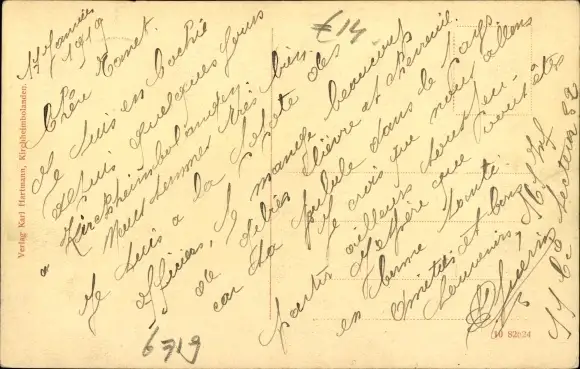 17 Janvier
1919
Chère Nanet.
Je suis en Bochie
depuis quelques jours
a Kirchheimbolanden.
Nous sommes très bien
Je suis a la popote des
officiers, je mange beaucoup
de lièvre et chevreuil.
car ça pulule dans le pays.
Je crois que nous allons
partir ailleurs sous peu.
J'espère que vous êtes
en bonne santé.
Amitiés et bons
souvenirs,
Inf
11e Cie Secteur 82
€14
6719
Verlag Karl Hartmann, Kirchheimbolanden.
10 82624